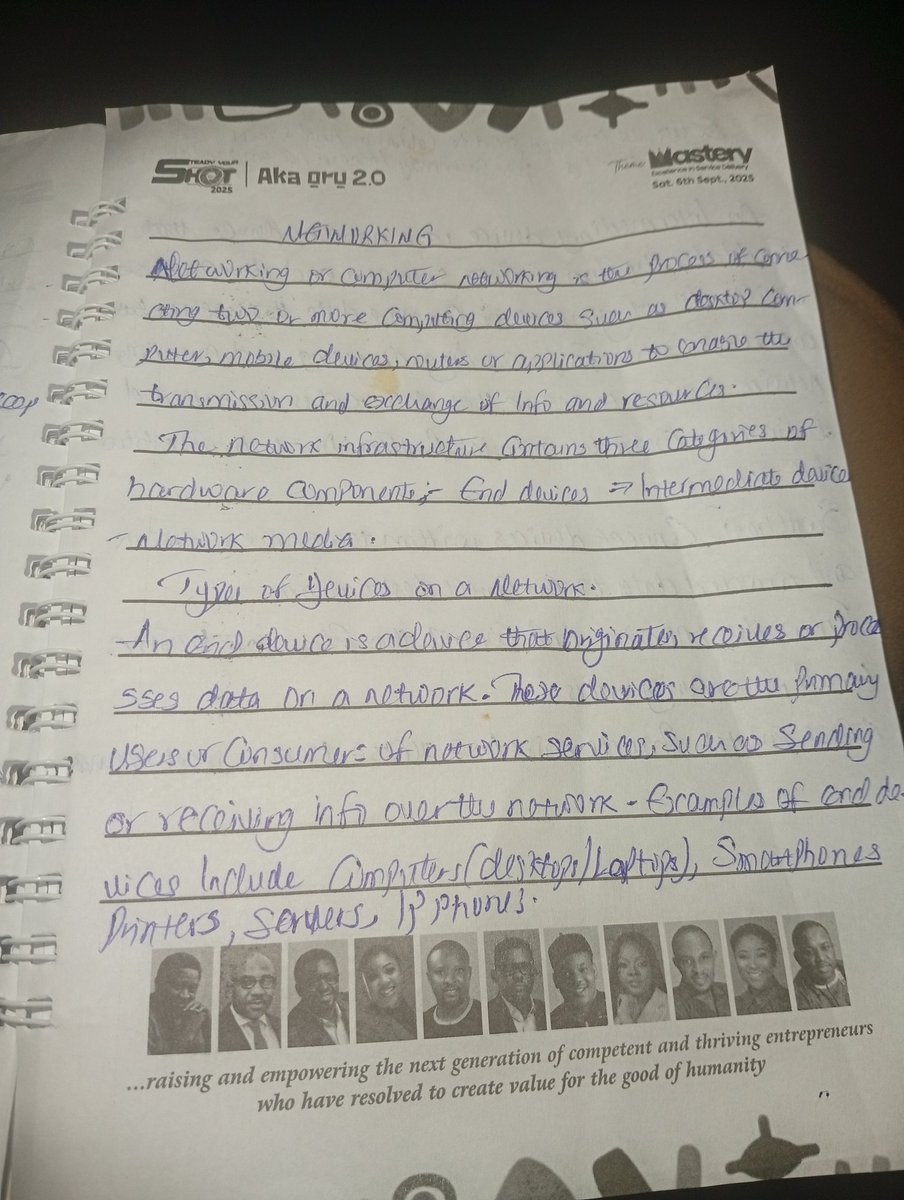 STEADY YOUR
SHOT
2025
Aka ọrụ 2.0
Theme
Mastery
Excellence in Service Delivery
Sat. 6th Sept., 2025
NETWORKING
Networking or computer networking is the process of conne
cting two or more computing devices such as desktop com-
puter, mobile devices, routers or applications to enable the
transmission and exchange of info and resources.
The network infrastructure contains three categories of
hardware components;- End devices ⇒ Intermediate device
- Network media.
Types of Devices on a Network.
- An end device is a device that originates, receives or proce
sses data on a network. These devices are the primary
users or consumers of network services, such as sending
or receiving info over the network - Examples of end de-
vices Include Computers (desktops/Laptops), Smartphones
Printers, Servers, IP phones.
...raising and empowering the next generation of competent and thriving entrepreneurs
who have resolved to create value for the good of humanity
coop